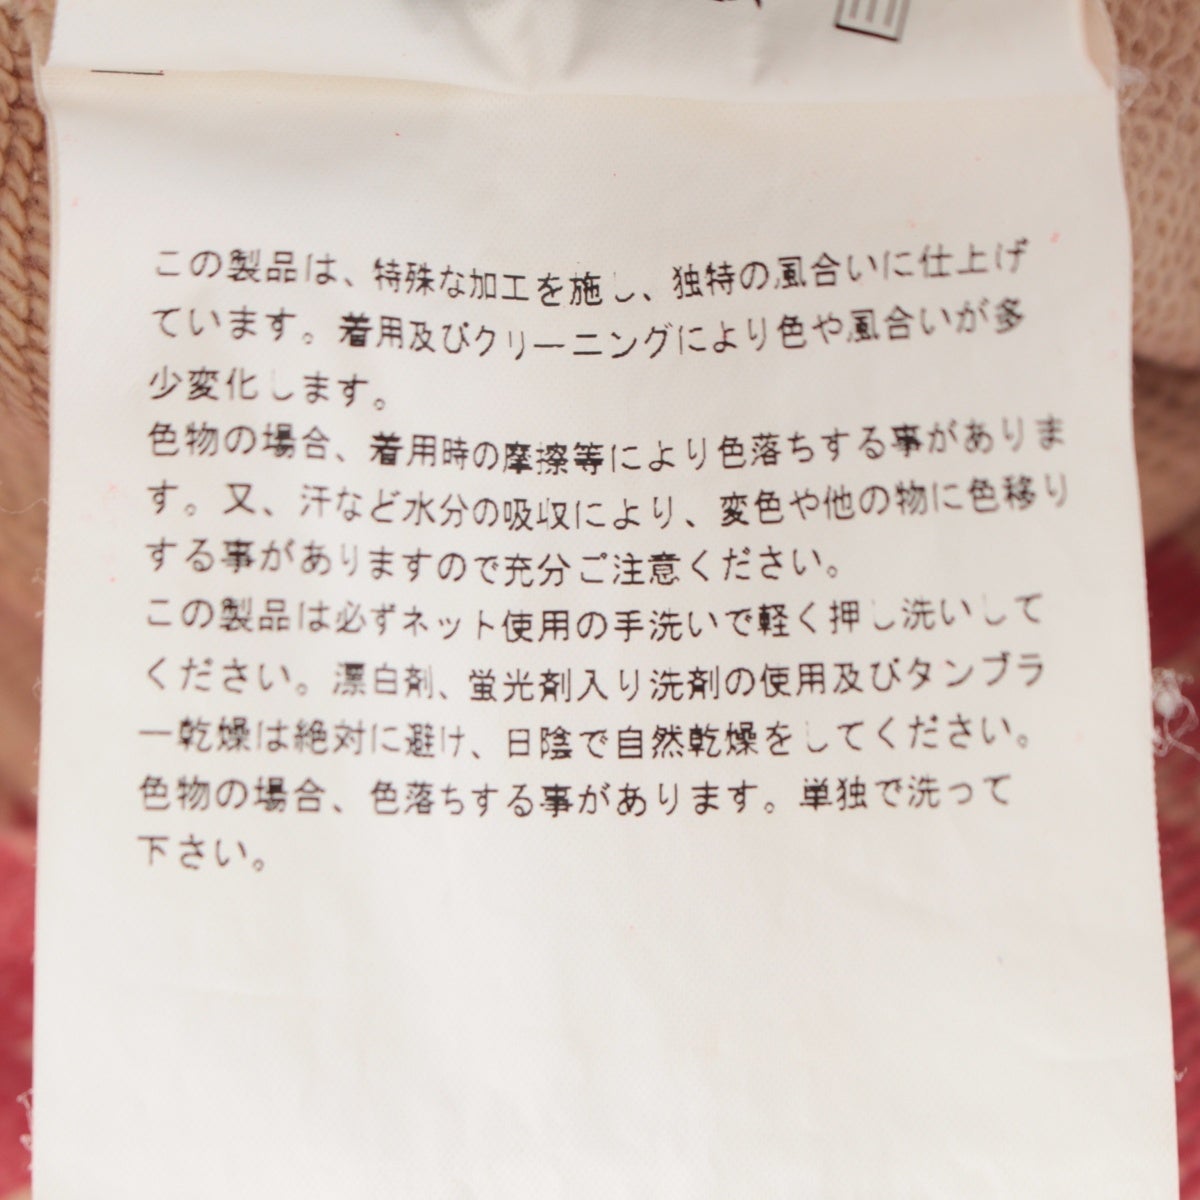 この製品は、特殊な加工を施し、独特の風合いに仕上げ
ています。着用及びクリーニングにより色や風合いが多
少変化します。
色物の場合、着用時の摩擦等により色落ちする事がありま
す。又、汗など水分の吸収により、変色や他の物に色移り
する事がありますので充分ご注意ください。
この製品は必ずネット使用の手洗いで軽く押し洗いして
ください。漂白剤、蛍光剤入り洗剤の使用及びタンブラ
ー乾燥は絶対に避け、日陰で自然乾燥をしてください。
色物の場合、色落ちする事があります。単独で洗って
下さい。